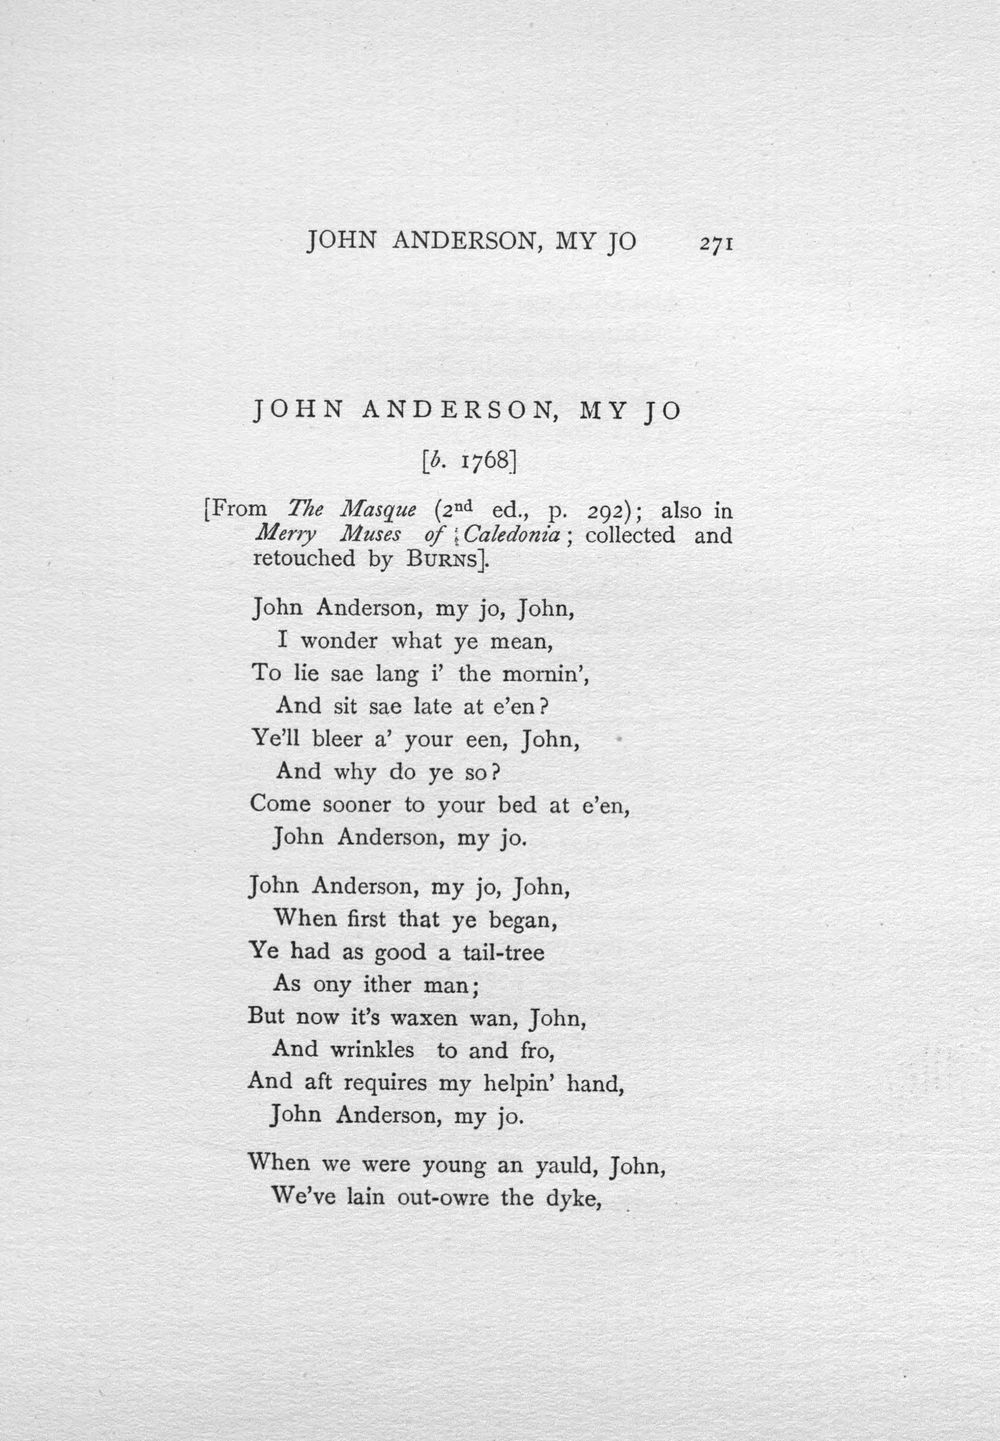 JOHN ANDERSON, MY JO 271
JOHN ANDERSON, MY JO
[b. 1768]
[From The Masque (2nd ed., p. 292); also in
Merry Muses of Caledonia; collected and
retouched by BURNS].
John Anderson, my jo, John,
I wonder what ye mean,
To lie sae lang i' the mornin',
And sit sae late at e'en?
Ye'll bleer a' your een, John,
And why do ye so?
Come sooner to your bed at e'en,
John Anderson, my jo.
John Anderson, my jo, John,
When first that ye began,
Ye had as good a tail-tree
As ony ither man;
But now it's waxen wan, John,
And wrinkles to and fro,
And aft requires my helpin' hand,
John Anderson, my jo.
When we were young an yauld, John,
We've lain out-owre the dyke,